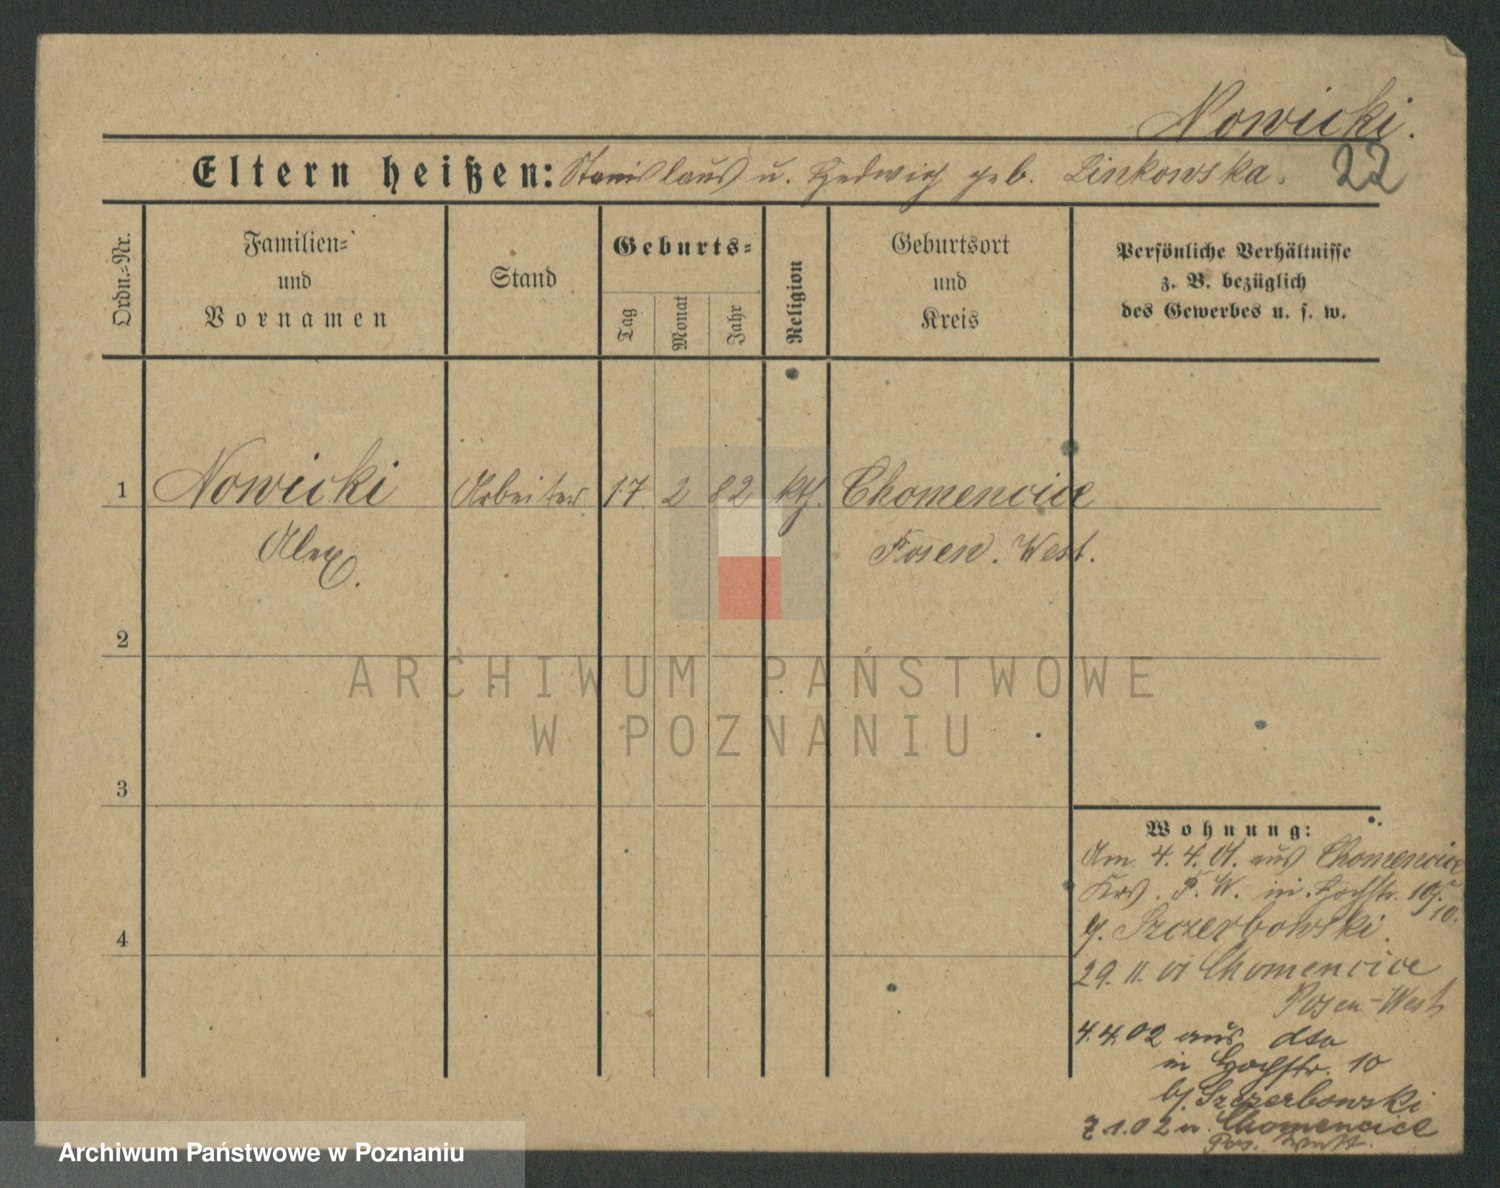 Nowicki.
Eltern heißen: Stanislaus u. Hedwig geb. Linkowska. 22
Ordn.-Nr.
Familien-
und
Vornamen
Stand
Geburts-
Tag
Monat
Jahr
Religion
Geburtsort
und
Kreis
Persönliche Verhältnisse
z. B. bezüglich
des Gewerbes u. s. w.
1 Nowicki Arbeiter 17 2 82 kth. Chomencice
Alex. Posen. West.
2
ARCHIWUM PAŃSTWOWE
W POZNANIU
3
4
Wohnung:
Am 4.4.01. aus Chomencice
Krs. P. W. in Hochstr. 10
Szczerbowski
29. 11. 01 Chomencice
Posen-West
4.4.02 aus dto
in Hochstr. 10
bj. Szczerbowski
1.02 n. Chomencice
Pos. West.
Archiwum Państwowe w Poznaniu